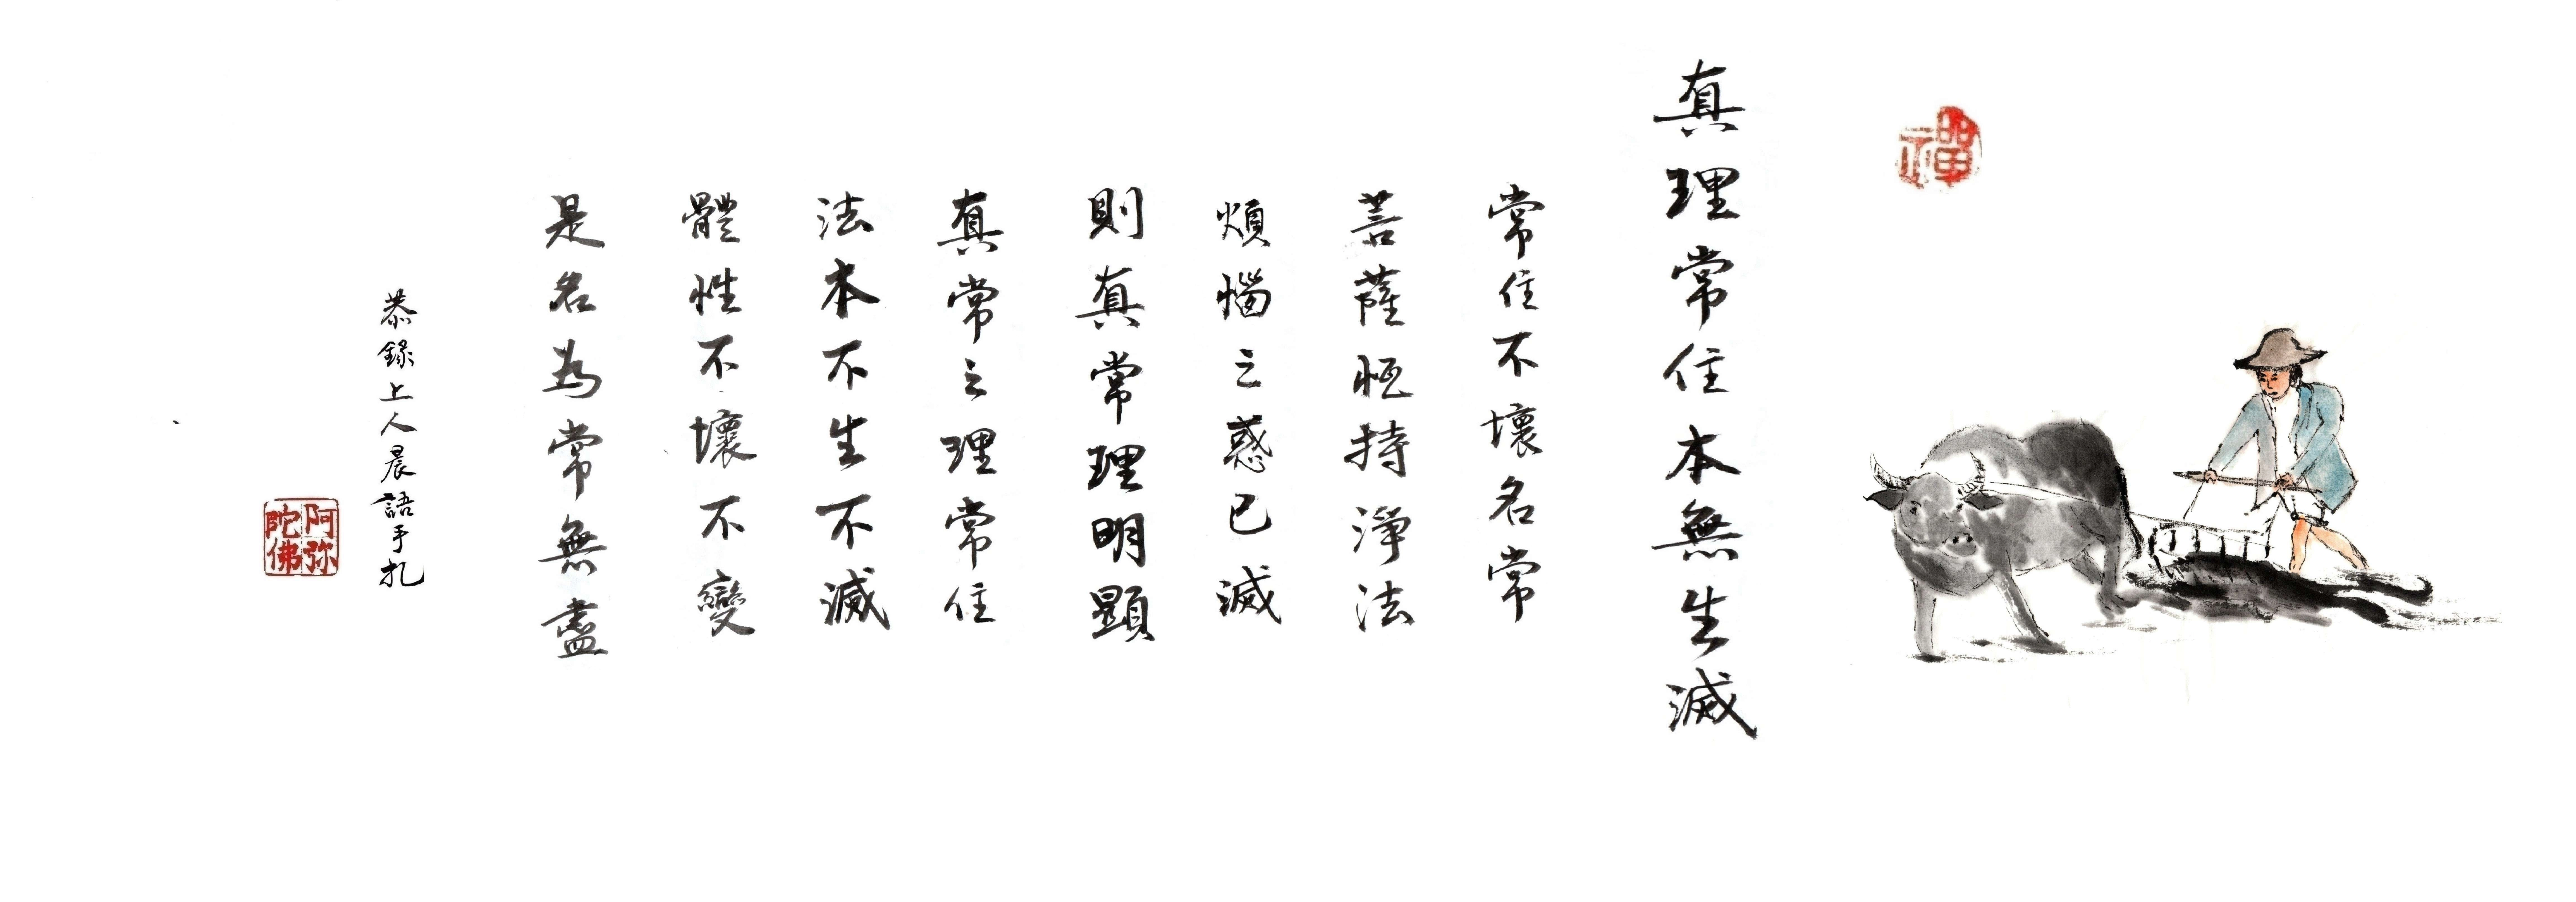 禪
真理常住本無生滅
常住不壞名常
菩薩恒持淨法
煩惱之惑已滅
則真常理明顯
真常之理常住
法本不生不滅
體性不壞不變
是名為常無盡
恭錄上人晨語手扎
阿弥
陀佛